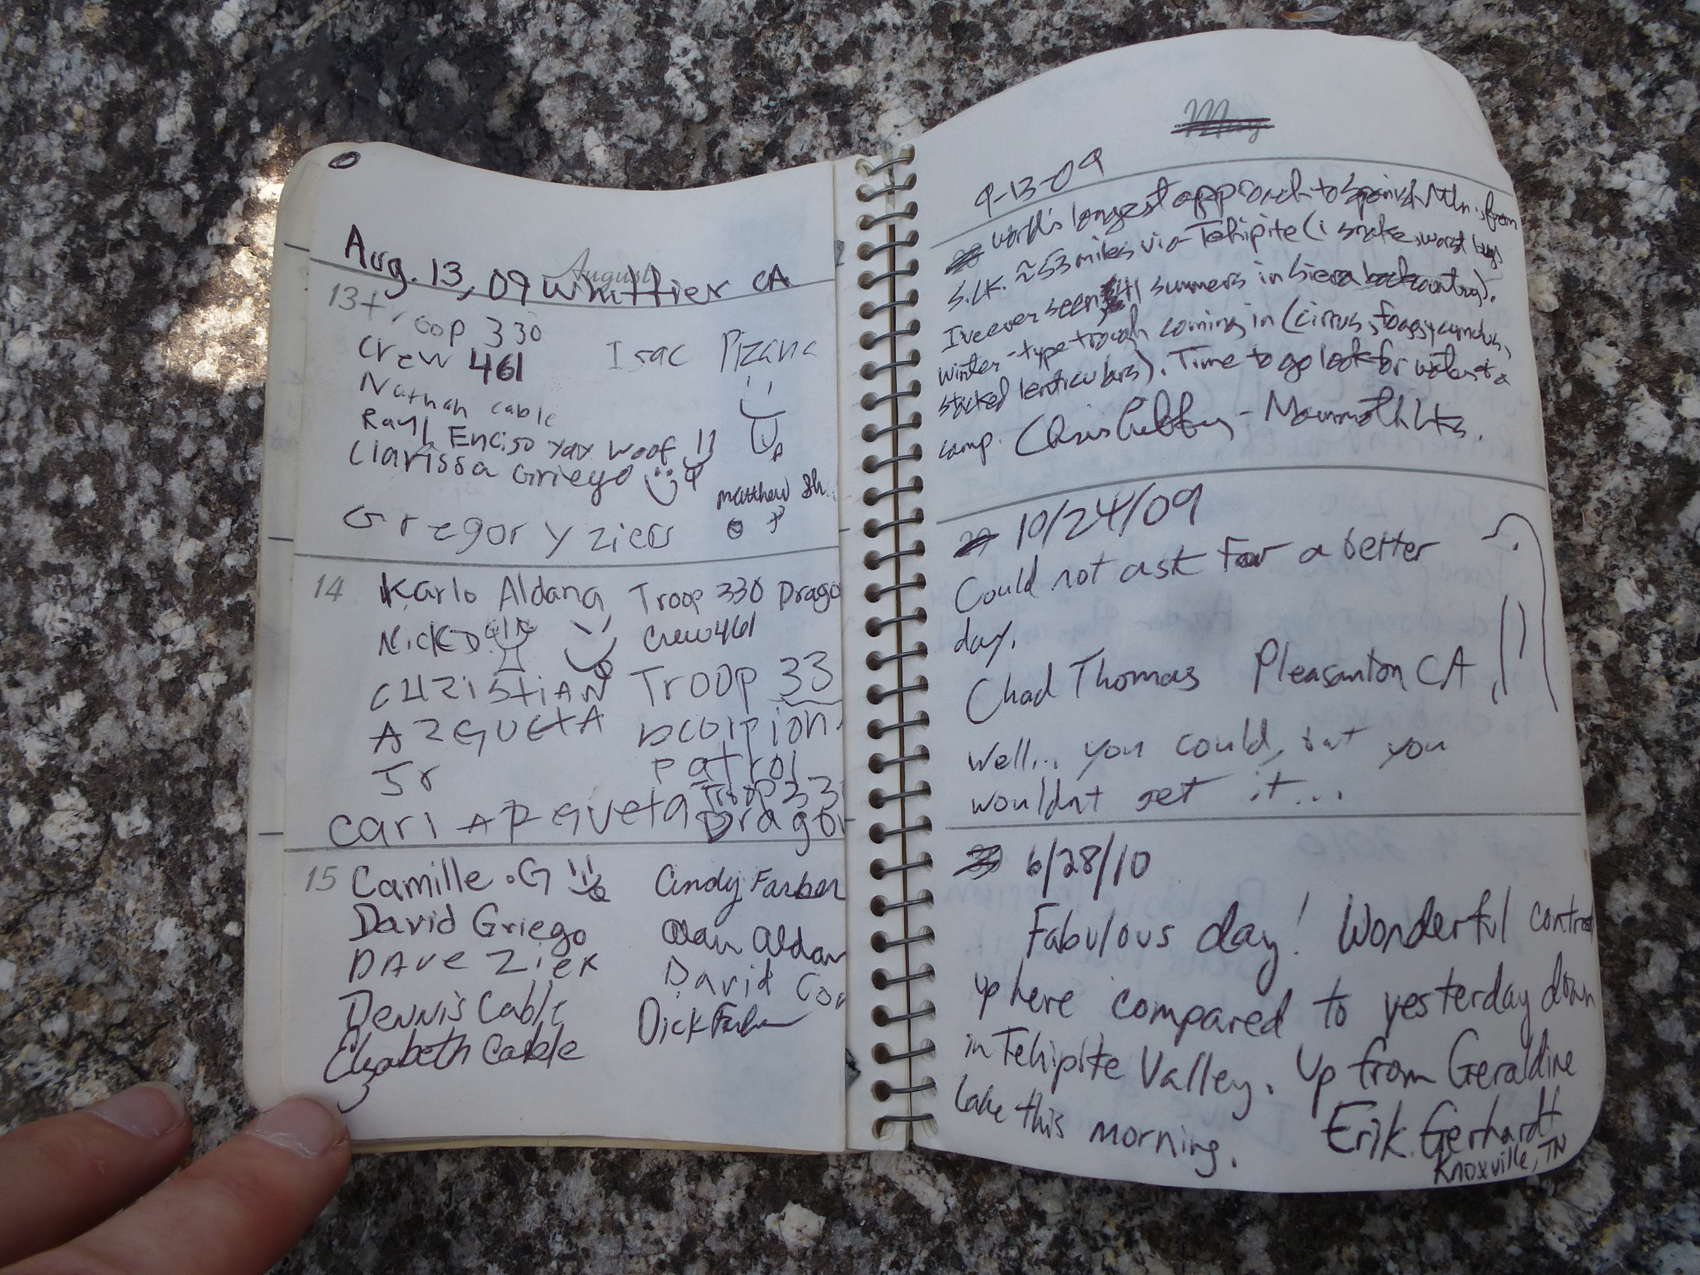 Aug. 13, 09 Whittier CA
August
13 Troop 330
Crew 461
Isac Pizana
Nathan Cable
Raul Enciso yay woof !!
Clarissa Griego
Matthew Sh
Gregory Ziers
14 Karlo Aldana Troop 330 Drago
Nick D Crew 461
CHRiStiAN Troop 33
AZGUETA scorpion
Jr patrol
Carl AZGUETA Troop 33
Dragon
15 Camille .G Cindy Farber
David Griego Alan Aldan
Dave Zier David Co
Dennis Cable Dick Farber
Elizabeth Cable
May
9-13-09
world's longest approach to Spanish Mtn. from
S.LK. ≈53 miles via Tehipite (1 snake, worst bugs
I've ever seen, 41 summers in Siera backcountry).
winter-type trough coming in (cirrus, foggy cumulus,
stacked lenticulars). Time to go look for water & a
camp. Chris - Mammoth Lks.
10/24/09
Could not ask For a better
day.
Chad Thomas Pleasanton CA
Well... you could, but you
wouldnt get it...
6/28/10
Fabulous day! Wonderful contra
up here compared to yesterday down
in Tehipite Valley. Up from Geraldine
Lake this morning. Erik Gerhardt
Knoxville, TN